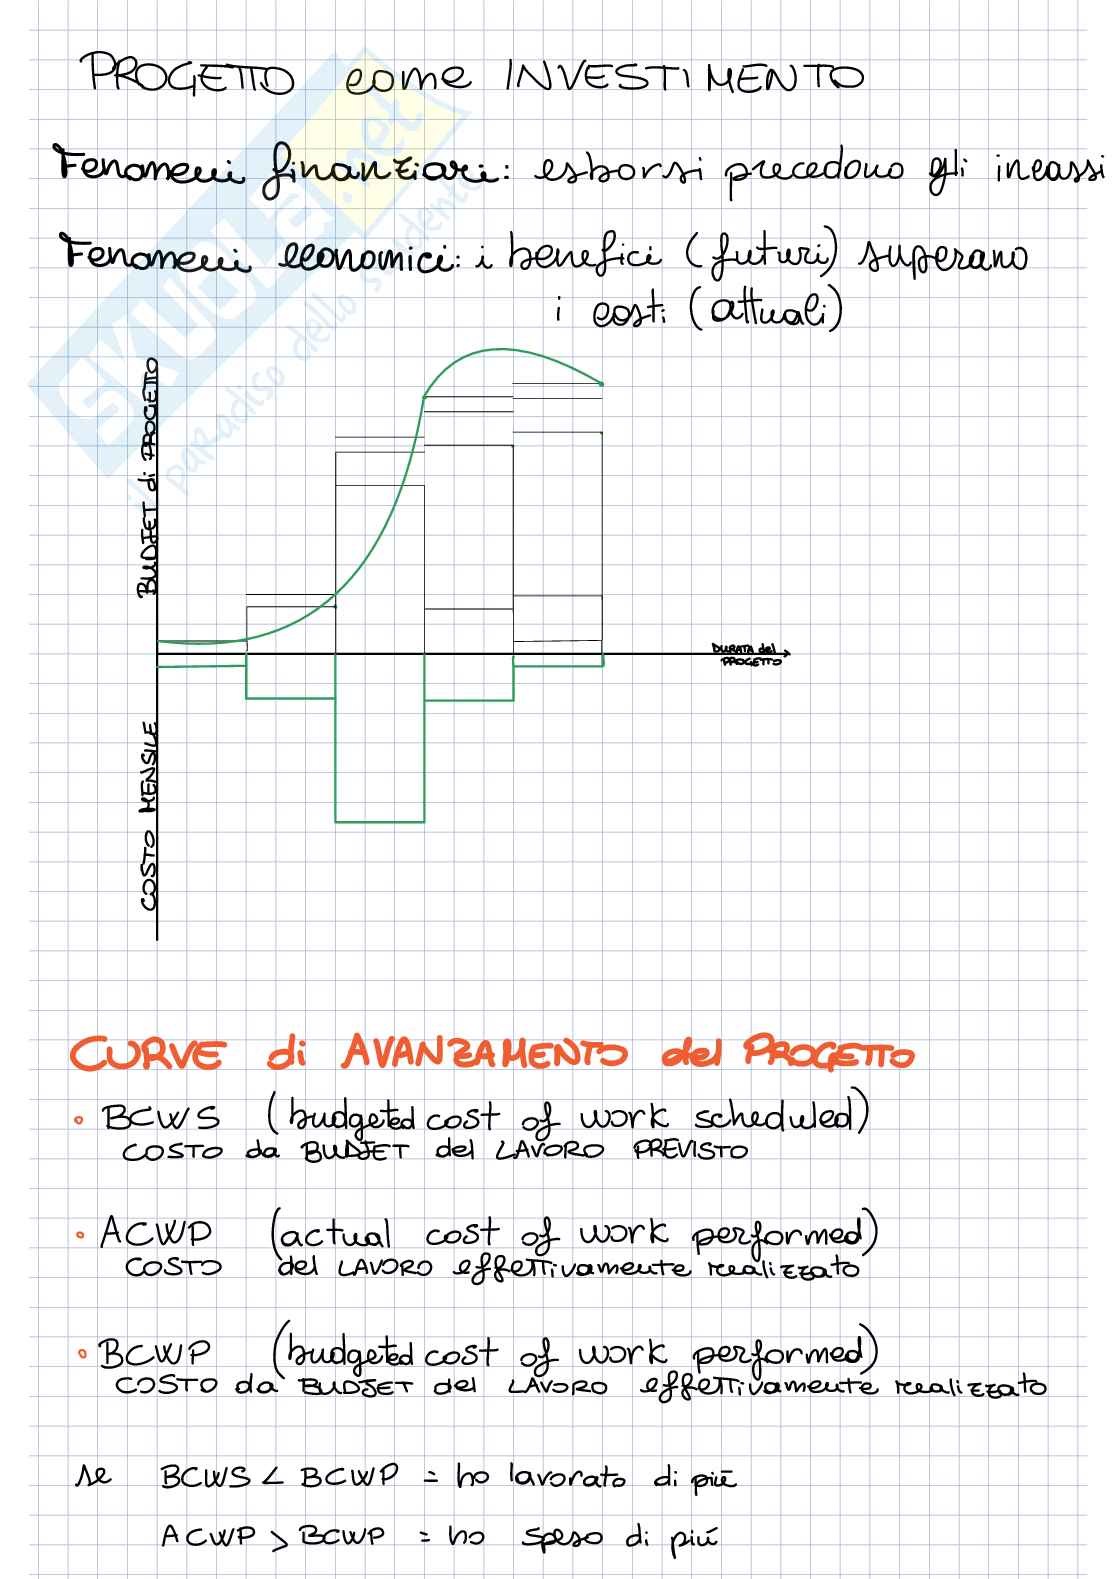 PROGETTO come INVESTIMENTO
Fenomeni finanziari: esborsi precedono gli incassi
Fenomeni economici: i benefici (futuri) superano
i costi (attuali)
BUDJET di PROGETTO
DURATA del
PROGETTO
COSTO MENSILE
CURVE di AVANZAMENTO del PROGETTO
• BCWS (budgeted cost of work scheduled)
COSTO da BUDJET del LAVORO PREVISTO
• ACWP (actual cost of work performed)
COSTO del LAVORO effettivamente realizzato
• BCWP (budgeted cost of work performed)
COSTO da BUDJET del LAVORO effettivamente realizzato
se BCWS < BCWP = ho lavorato di più
ACWP > BCWP = ho speso di più
SKUOLA.net
il paradiso dello studente